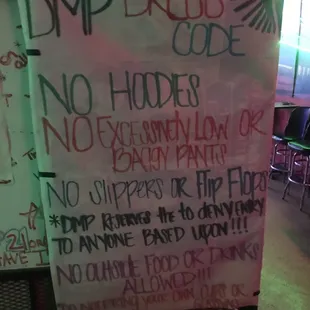 DMP DRESS
CODE
NO HOODIES
NO EXCESSIVELY LOW OR
BAGGY PANTS
NO SLIPPERS OR FLIP FLOPS
*DMP RESERVES THE TO DENY ENTRY
TO ANYONE BASED UPON!!!
NO OUTSIDE FOOD OR DRINKS
ALLOWED!!!
YOUR OWN CUPS OR